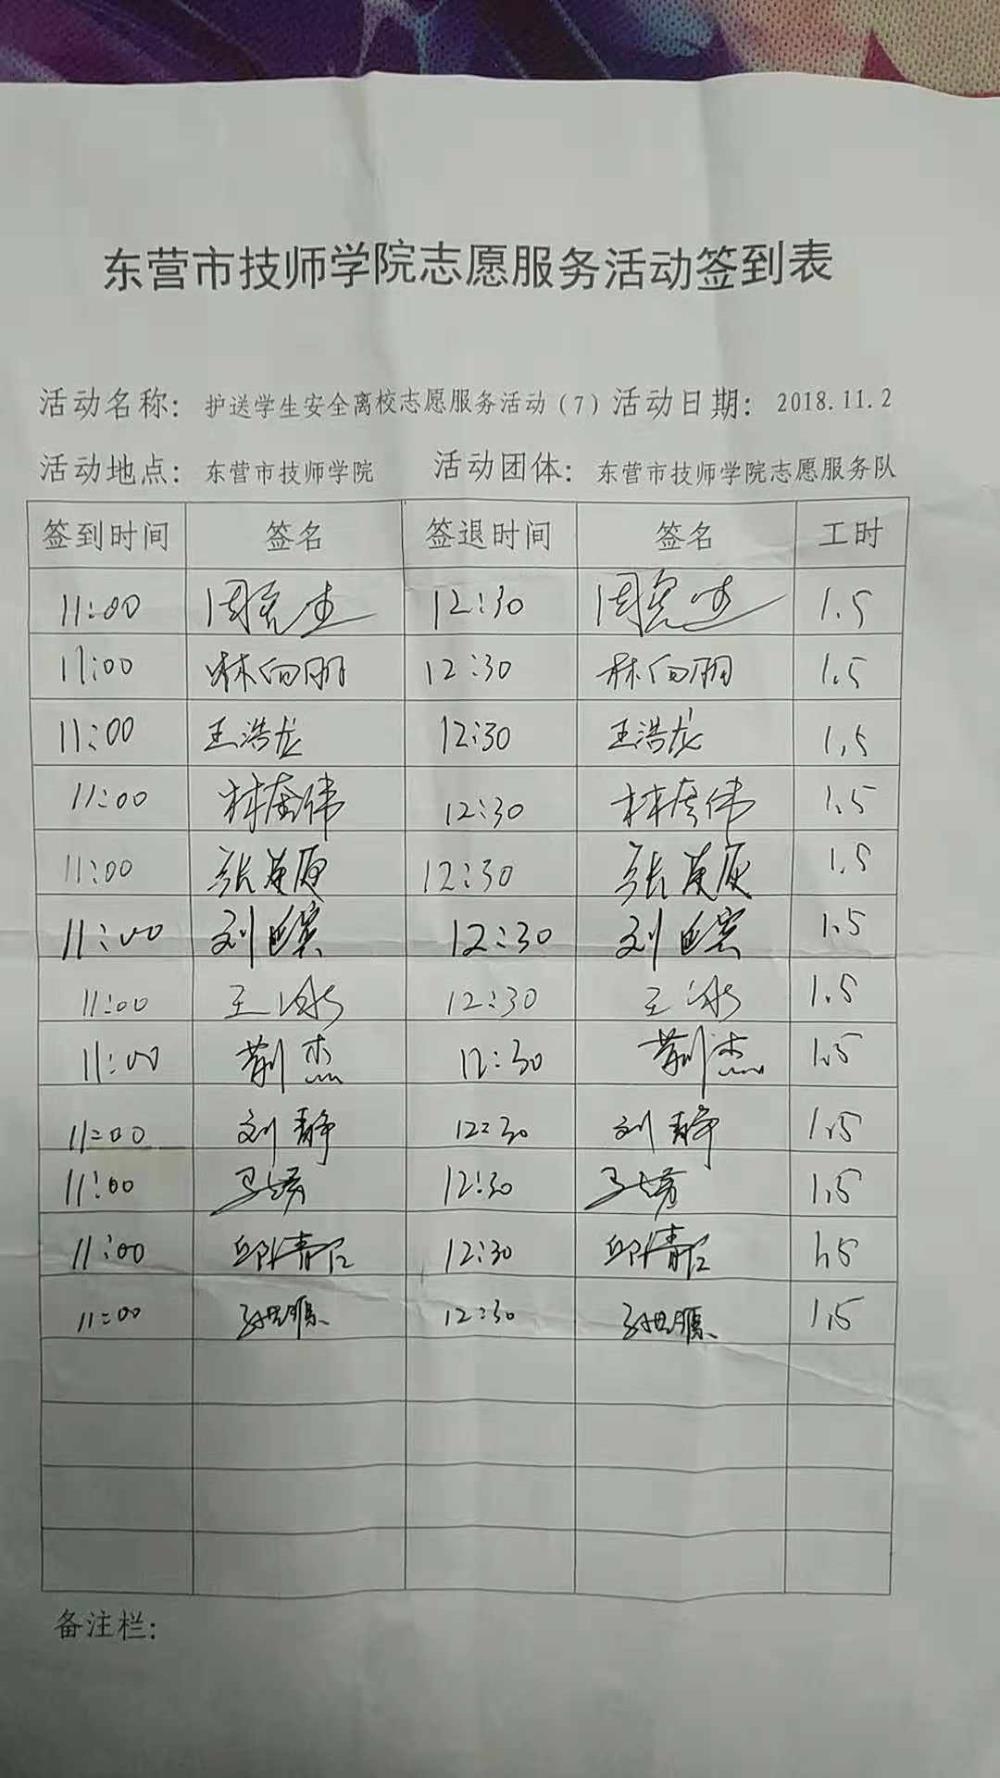 东营市技师学院志愿服务活动签到表
活动名称: 护送学生安全离校志愿服务活动(7) 活动日期: 2018.11.2
活动地点: 东营市技师学院 活动团体: 东营市技师学院志愿服务队
签到时间 签名 签退时间 签名 工时
11:00 12:30 1.5
11:00 林向明 12:30 林向明 1.5
11:00 王浩龙 12:30 王浩龙 1.5
11:00 12:30 1.5
11:00 12:30 1.5
11:00 12:30 1.5
11:00 王冰 12:30 王冰 1.5
11:00 荆杰 12:30 荆杰 1.5
11:00 刘静 12:30 刘静 1.5
11:00 12:30 1.5
11:00 12:30 1.5
11:00 12:30 1.5
备注栏: